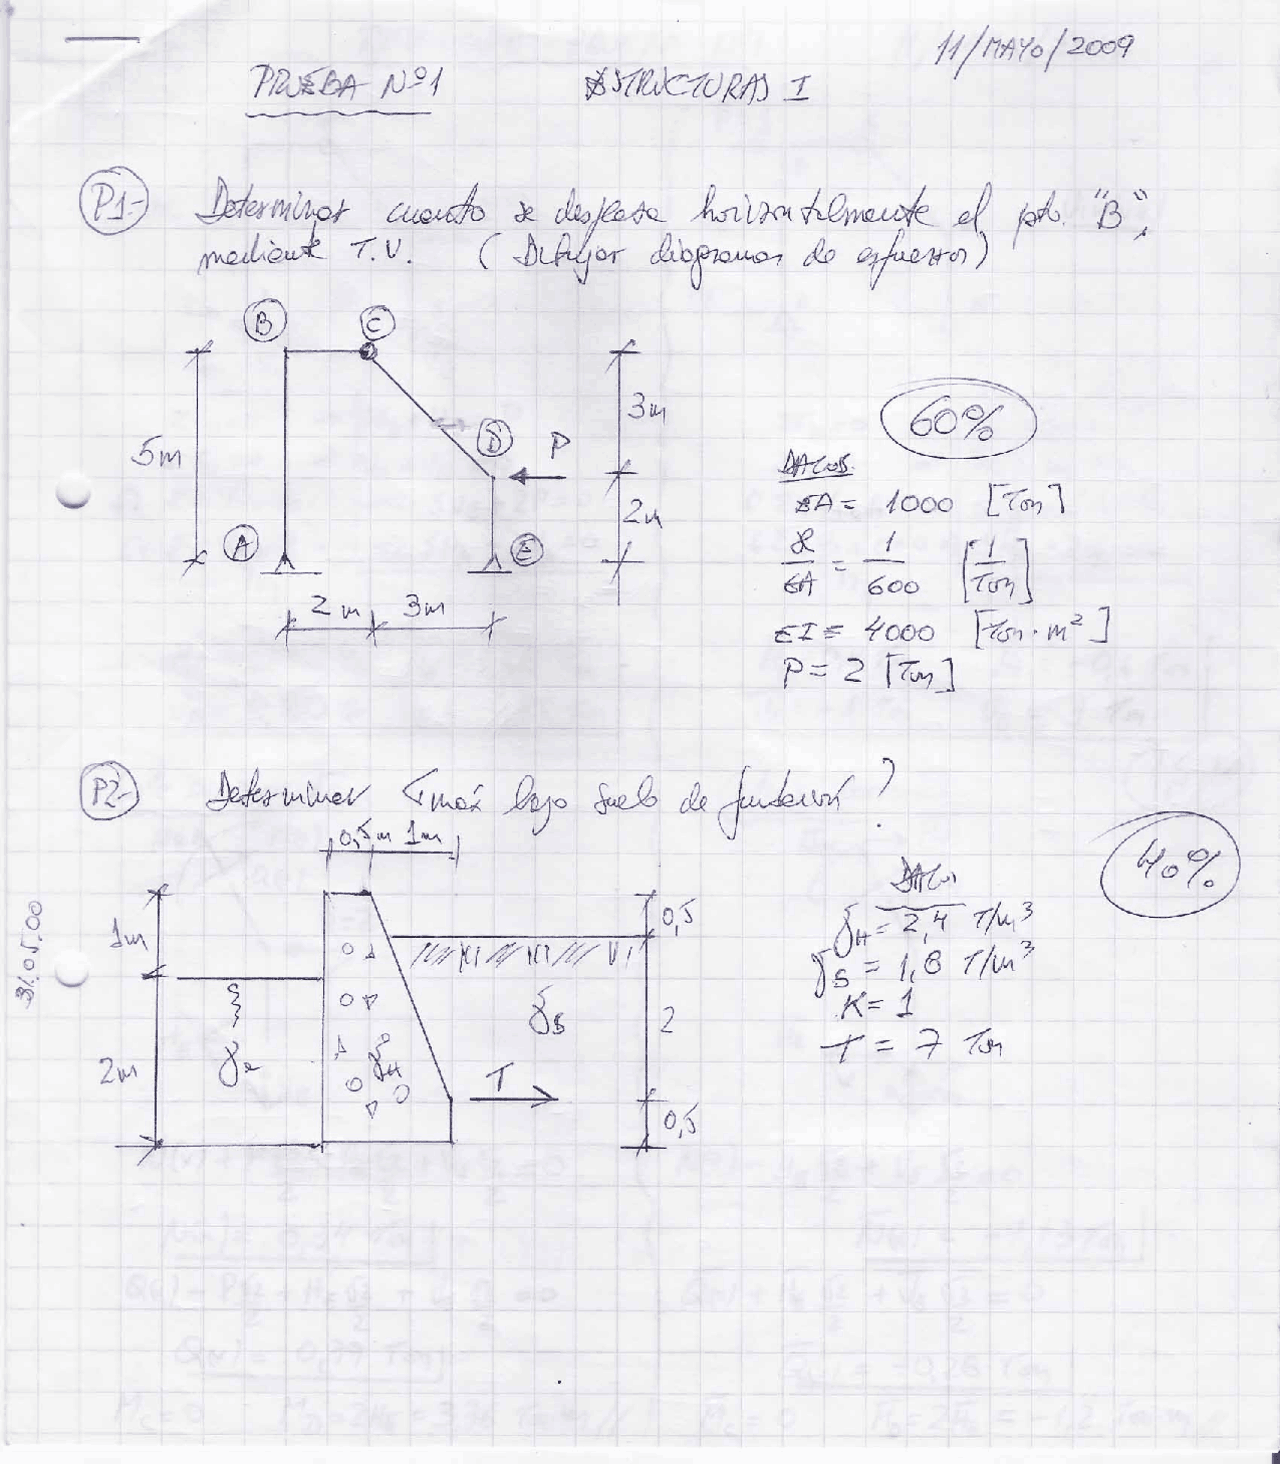 11/MAYO/2009
PRUEBA Nº1 ESTRUCTURAS I
P1.- Determinar cuanto se desplaza horizontalmente el pto. "B",
mediante T.V. (Dibujar diagramas de esfuerzos)
B C
3m
60%
5m
D P
DATOS
EA = 1000 [Ton]
2m
A E
æ/EA = 1/600 [1/Ton]
2m 3m
EI = 4000 [Ton·m²]
P = 2 [Ton]
P2.- Determinar σmáx bajo suelo de fundación?
0,5m 1m
40%
DATOS
0,5
γH = 2,4 T/m³
1m
γS = 1,8 T/m³
31.05.00
K = 1
γS
2
T = 7 Ton
2m
γH
T
0,5